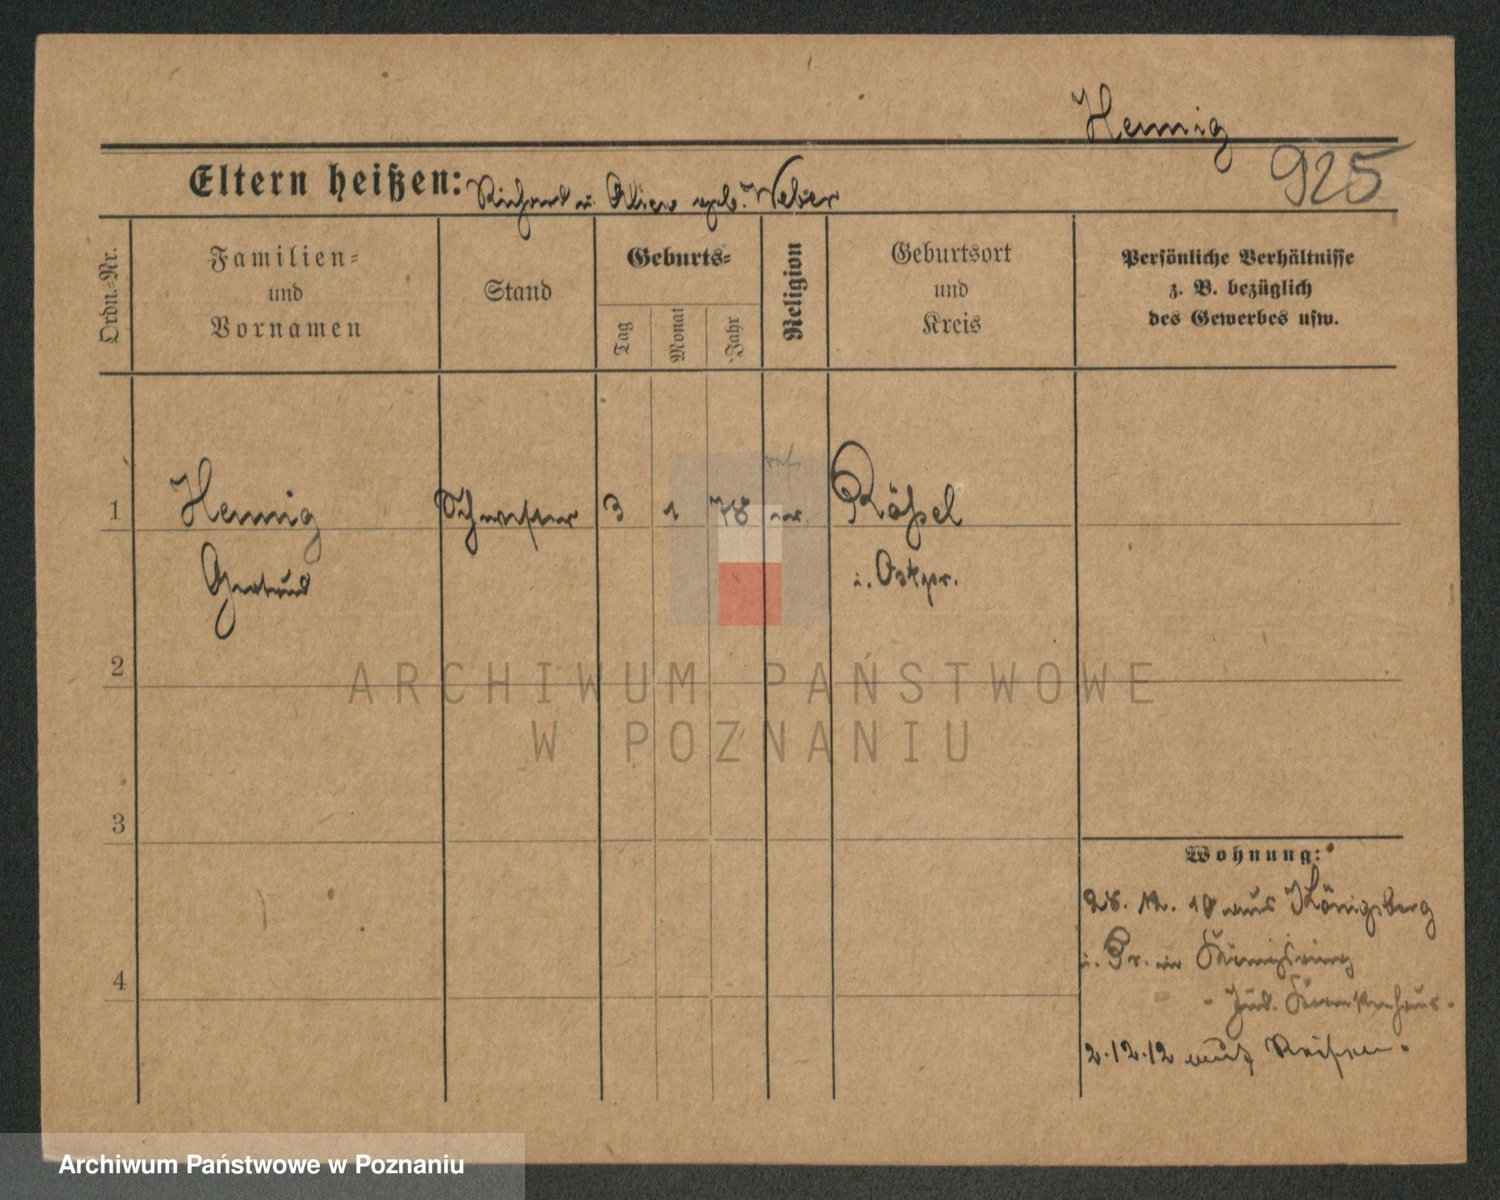 Hennig
925
Eltern heißen: Richard u. Alice geb. Weber
Ordn.-Nr.
Familien-
und
Vornamen
Stand
Geburts-
Tag
Monat
Jahr
Religion
Geburtsort
und
Kreis
Persönliche Verhältnisse
z. B. bezüglich
des Gewerbes usw.
ref.
1 Hennig Schwester 3 1 78 ev. Rößel
Gertrud i. Ostpr.
2
ARCHIWUM PAŃSTWOWE
W POZNANIU
3
Wohnung:
28. 12. 10 aus Königsberg
i. Pr. in Königsring
- Jüd. Krankenhaus -
4
2.12.12 auf Reisen.
Archiwum Państwowe w Poznaniu